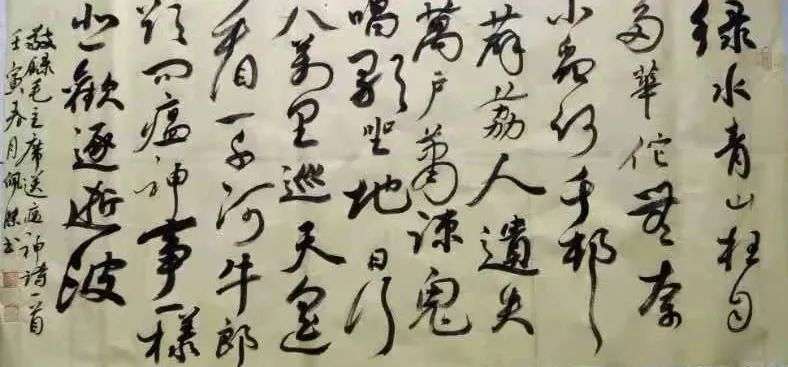 绿水青山枉自
多華佗無奈
小蟲何千邨
薜荔人遺矢
萬户蕭疎鬼
唱歌坐地日行
八萬里巡天遥
看一千河牛郎
欲问瘟神事一樣
悲歡逐逝波
敬録毛主席送瘟神詩一首
壬寅春月佩